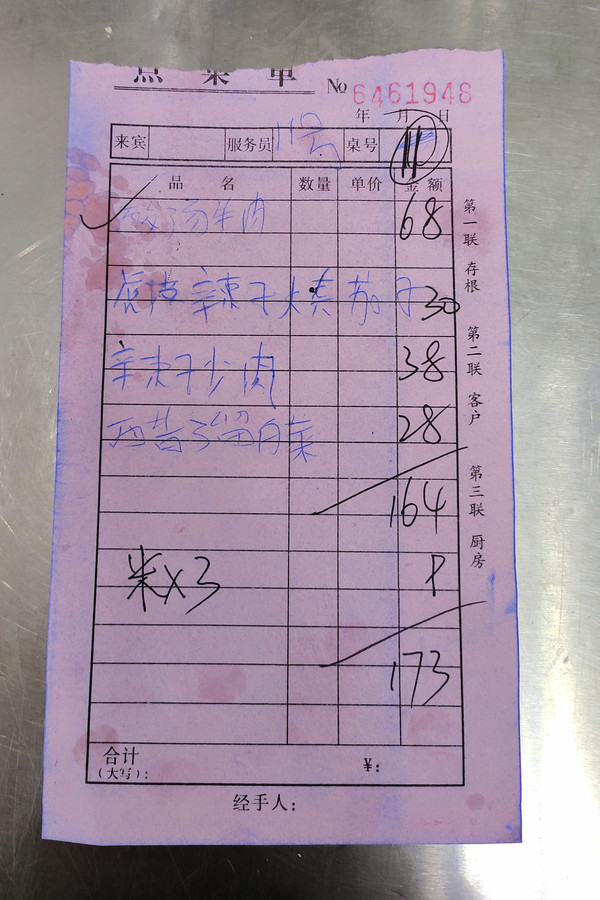 点菜单
№ 6461948
年 月 日
来宾 服务员 11号 桌号 11
品名 数量 单价 金额
牛肉 68
虎皮辣子烧茄子 30
辣子炒肉 38
28
164
米x3
173
合计
(大写): ¥:
经手人:
第一联 存根 第二联 客户 第三联 厨房